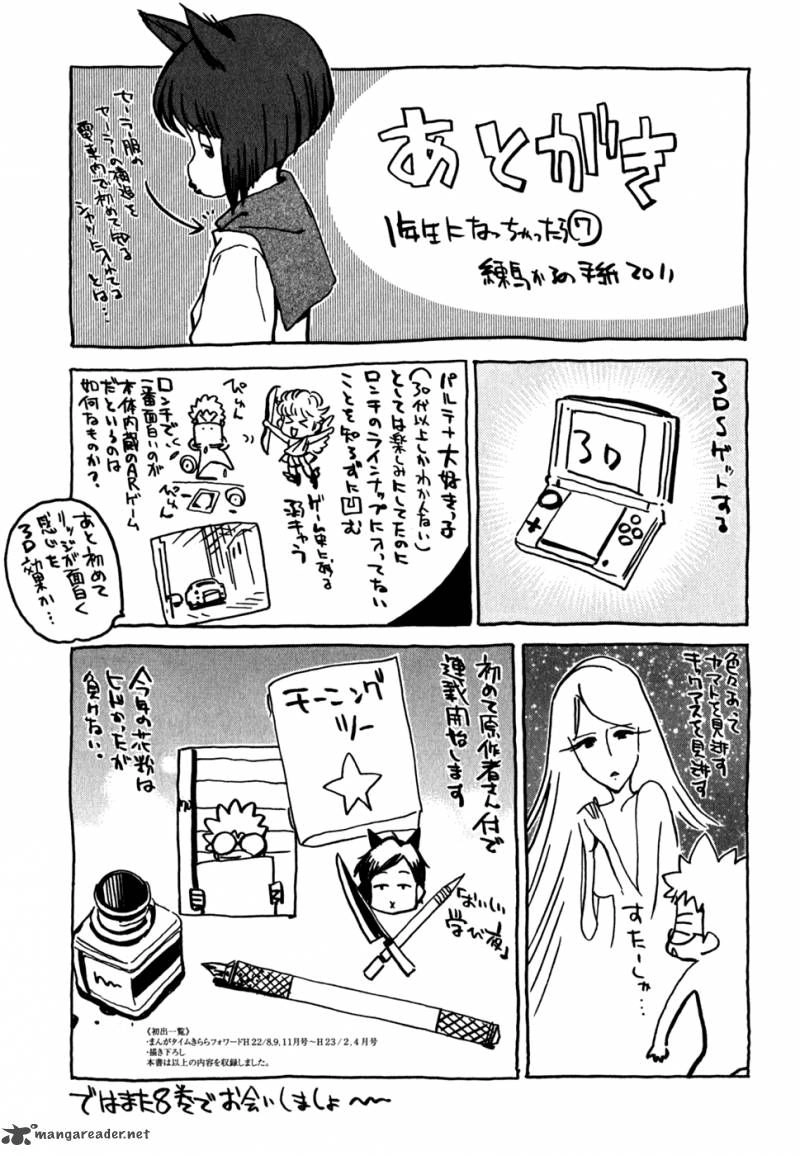 あとがき
1年生になっちゃったら⑦
練馬かるの手紙 2011
セーラー服の
セーラーの構造を
電車内で初めて知る
シャツに入れてる
とは…
3DSゲットする
3D
パルテナ大好きっ子
(30代以上しかわかんない)
としては楽しみにしてたのに
ロンチのラインナップに入ってない
ことを知らずに凹む
ゲーム史にある
弱キャラ
ぴゅん
ぴゅん
ロンチで
一番面白いのが
本体内蔵のARゲーム
だというのは
如何なものか?
あと初めて
リッジが面白く
感じた
3D効果か…
色々あって
ヤマトを見逃す
キックアスを見逃す
すたーしゃ…
初めて原作者さん付で
連載開始します
モーニング
ツー
「おいしい
学び夜」
今年の花粉は
とんかったが
負けない.
《初出一覧》
・まんがタイムきららフォワードH22/8,9,11月号～H23/2,4月号
・描き下ろし
本書は以上の内容を収録しました。
ではまた8巻でお会いしましょ～
mangareader.net